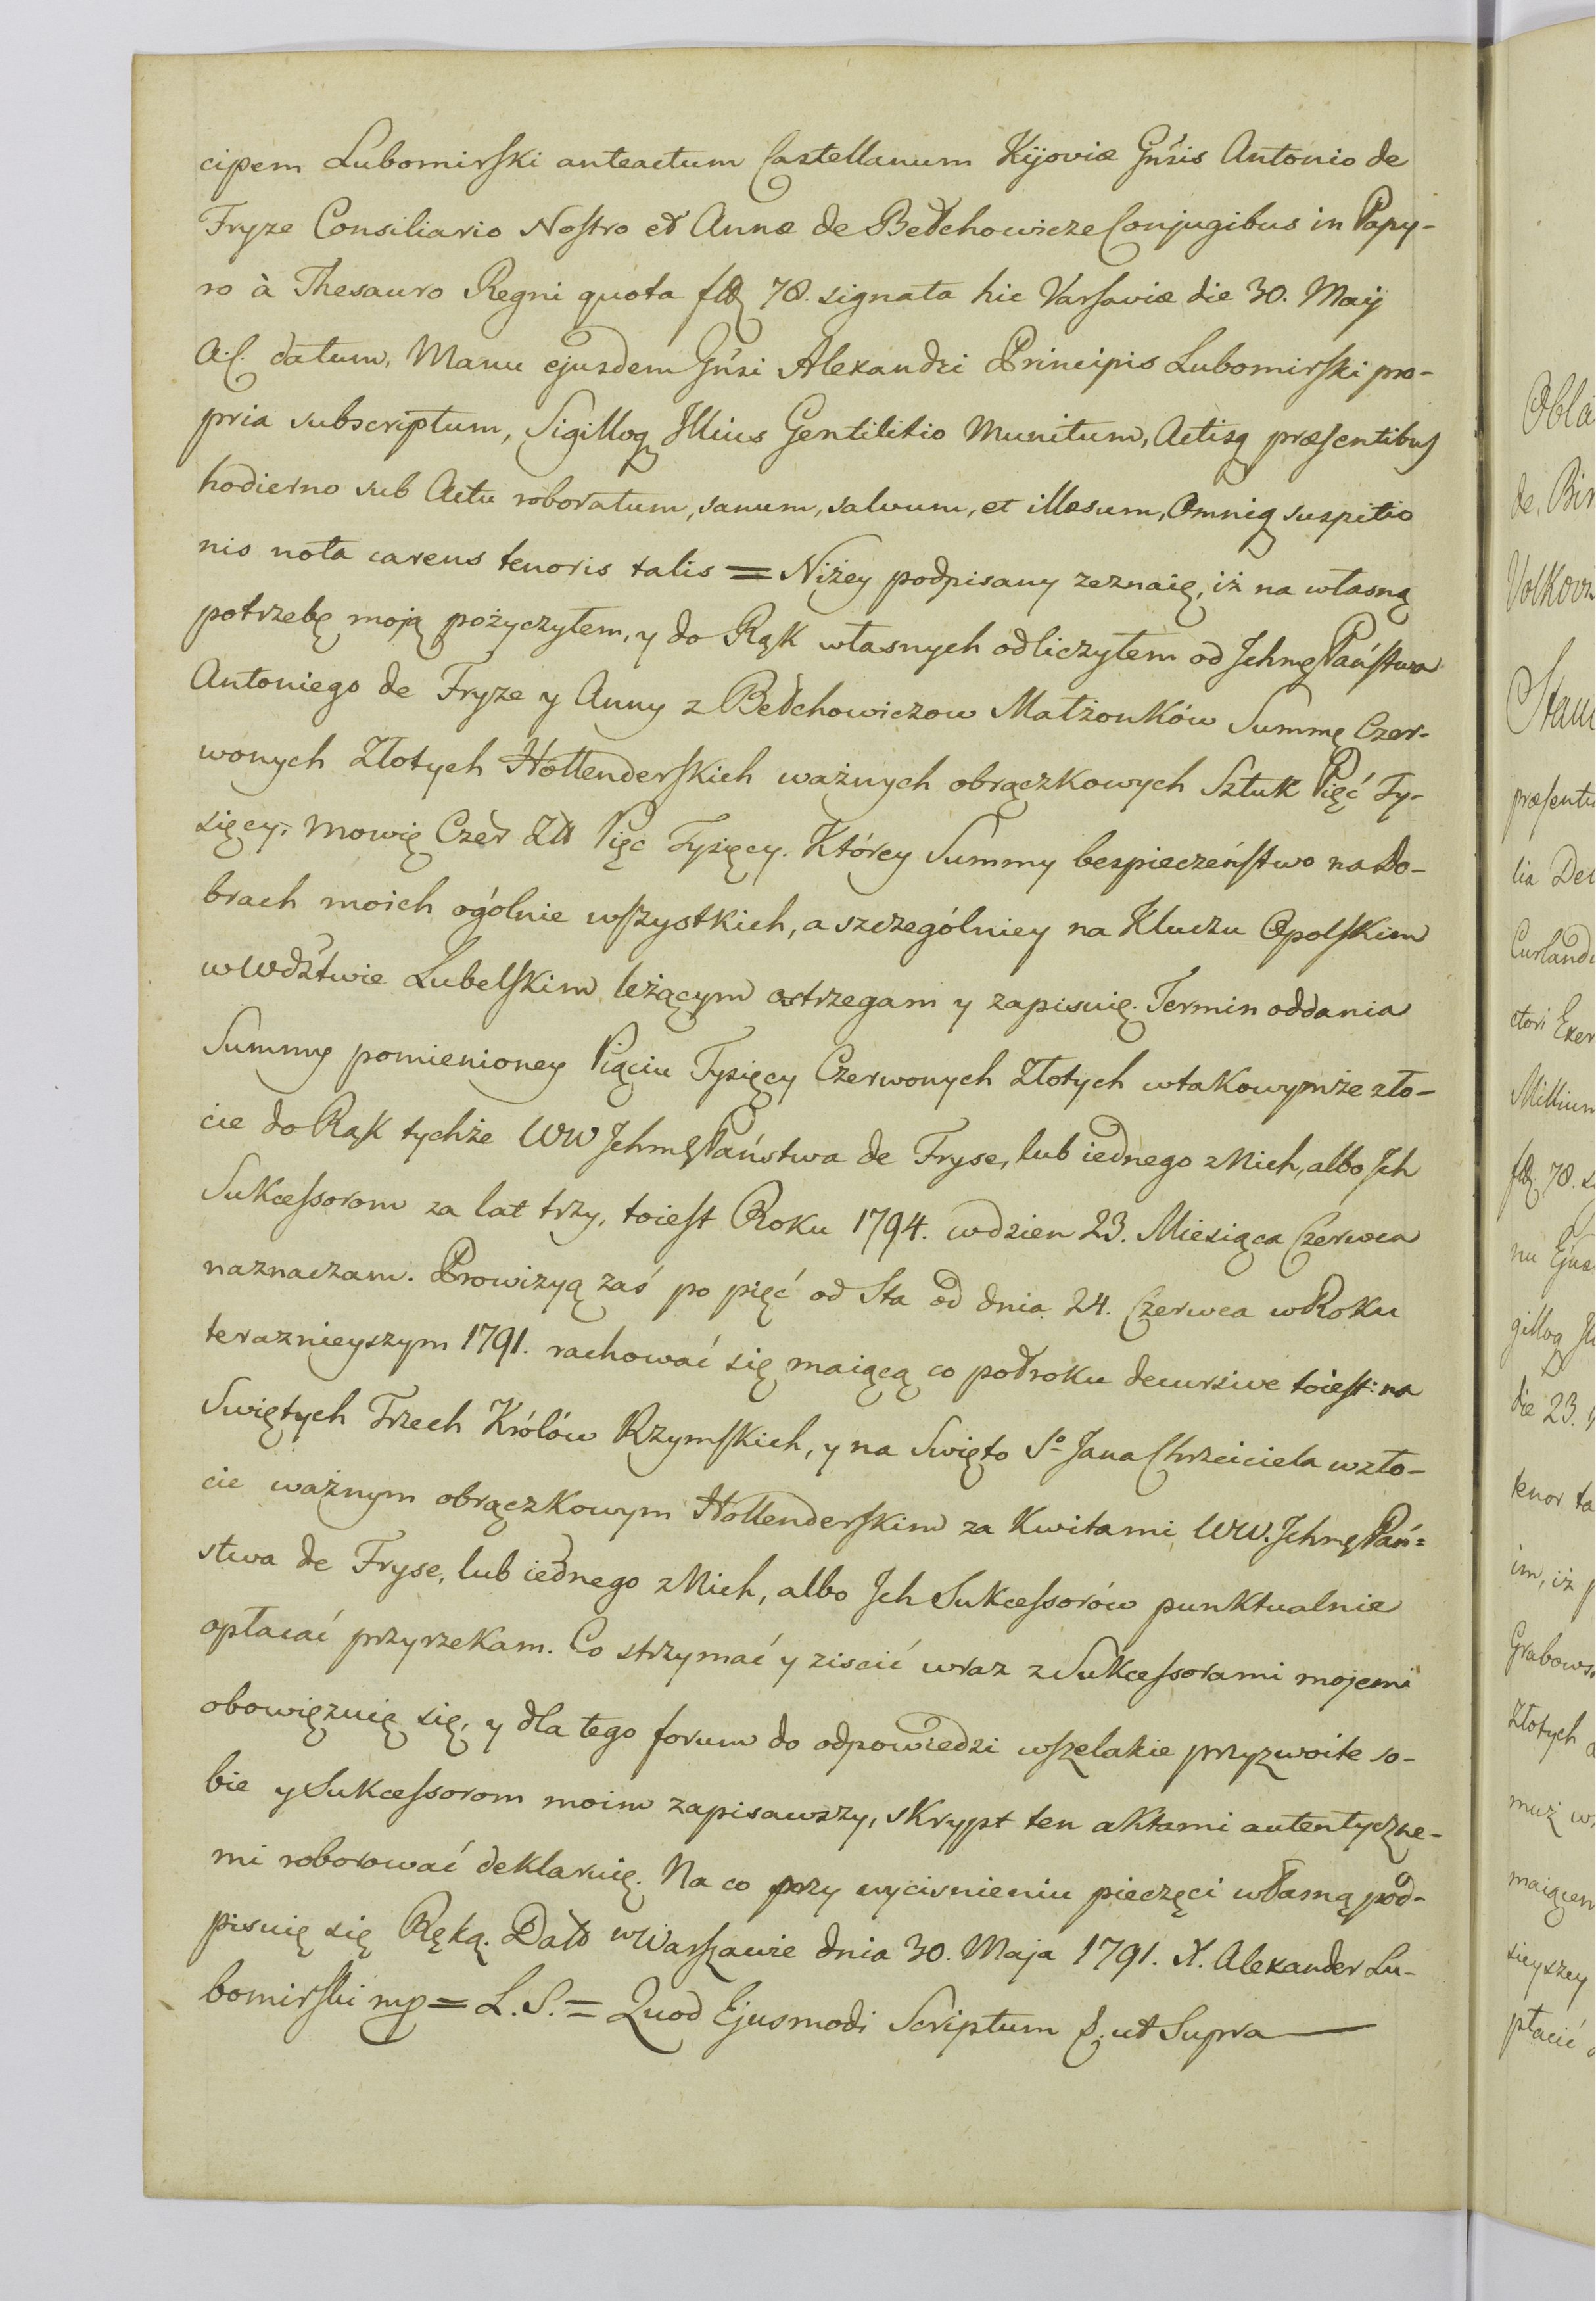 cipem Lubomirski anteactum Castellanum Kijoviæ Gnsis Antonio de
Fryze Consiliario Nostro et Annæ de Bełchowicze Conjugibus in Papy-
ro à Thesauro Regni quota 78. signata hic Varsaviæ die 30. Maij
A: C. datum, Manu ejusdem Gnsi Alexandri Principis Lubomirski pro-
pria subscriptum, Sigilloq Illius Gentilitio Munitum, Actisq præsentibus
hodierno sub Actu roboratum, sanum, salvum, et illæsum, Omniq suspitio
nis nota carens tenoris talis = Niżey podpisany zeznaię, iż na własną
potrzebę moją pożyczyłem, y do Rąk własnych odliczyłem od Jchmę Państwa
Antoniego de Fryze y Anny z Bełchowiczow Małżonków Summę Czer-
wonych Złotych Hollenderskich ważnych obrączkowych Sztuk Pięć Ty-
sięcy, mowię Czer Zll Pięc Tysięcy. Którey Summy bespieczeństwo na Do-
brach moich ogólnie wszystkich, a szczególniey na Kluczu Opolskim
w Wdztwie Lubelskim leżącym ostrzegam y zapisuię. Termin oddania
Summy pomienioney Pięciu Tysięcy Czerwonych Złotych w takowymże zło-
cie do Rąk tychże WW Jchmę Państwa de Fryse, lub iednego z Nich, albo Jch
Sukcessorom za lat trzy, toiest Roku 1794. w dzien 23. Miesiąca Czerwca
naznaczam. Prowizyą zaś po pięć od Sta od dnia 24. Czerwca w Roku
teraznieyszym 1791. rachować się maiącą co pół roku decursive toiest: na
Swiętych Trzech Królów Rzymskich, y na Swięto So Jana Chrzciciela w zło-
cie ważnym obrączkowym Hollenderskim za Kwitami WW. Jchmę Pań=
stwa de Fryse, lub iednego z Nich, albo Jch Sukcessorów punktualnie
opłacać przyrzekam. Co strzymać y ziscić wraz z Sukcessorami mojemi
obowięzuię się, y dla tego forum do odpowiedzi wszelakie przyzwoite so-
bie y Sukcessorom moim zapisawszy, skrypt ten aktami autentyczne-
mi roborować deklaruię. Na co przy wycisnieniu pieczęci własną pod-
pisuię się Ręką. Datt w Warszawie dnia 30. Maja 1791. X. Alexander Lu-
bomirski mp = L. S. = Quod Ejusmodi Scriptum &. ut Supra